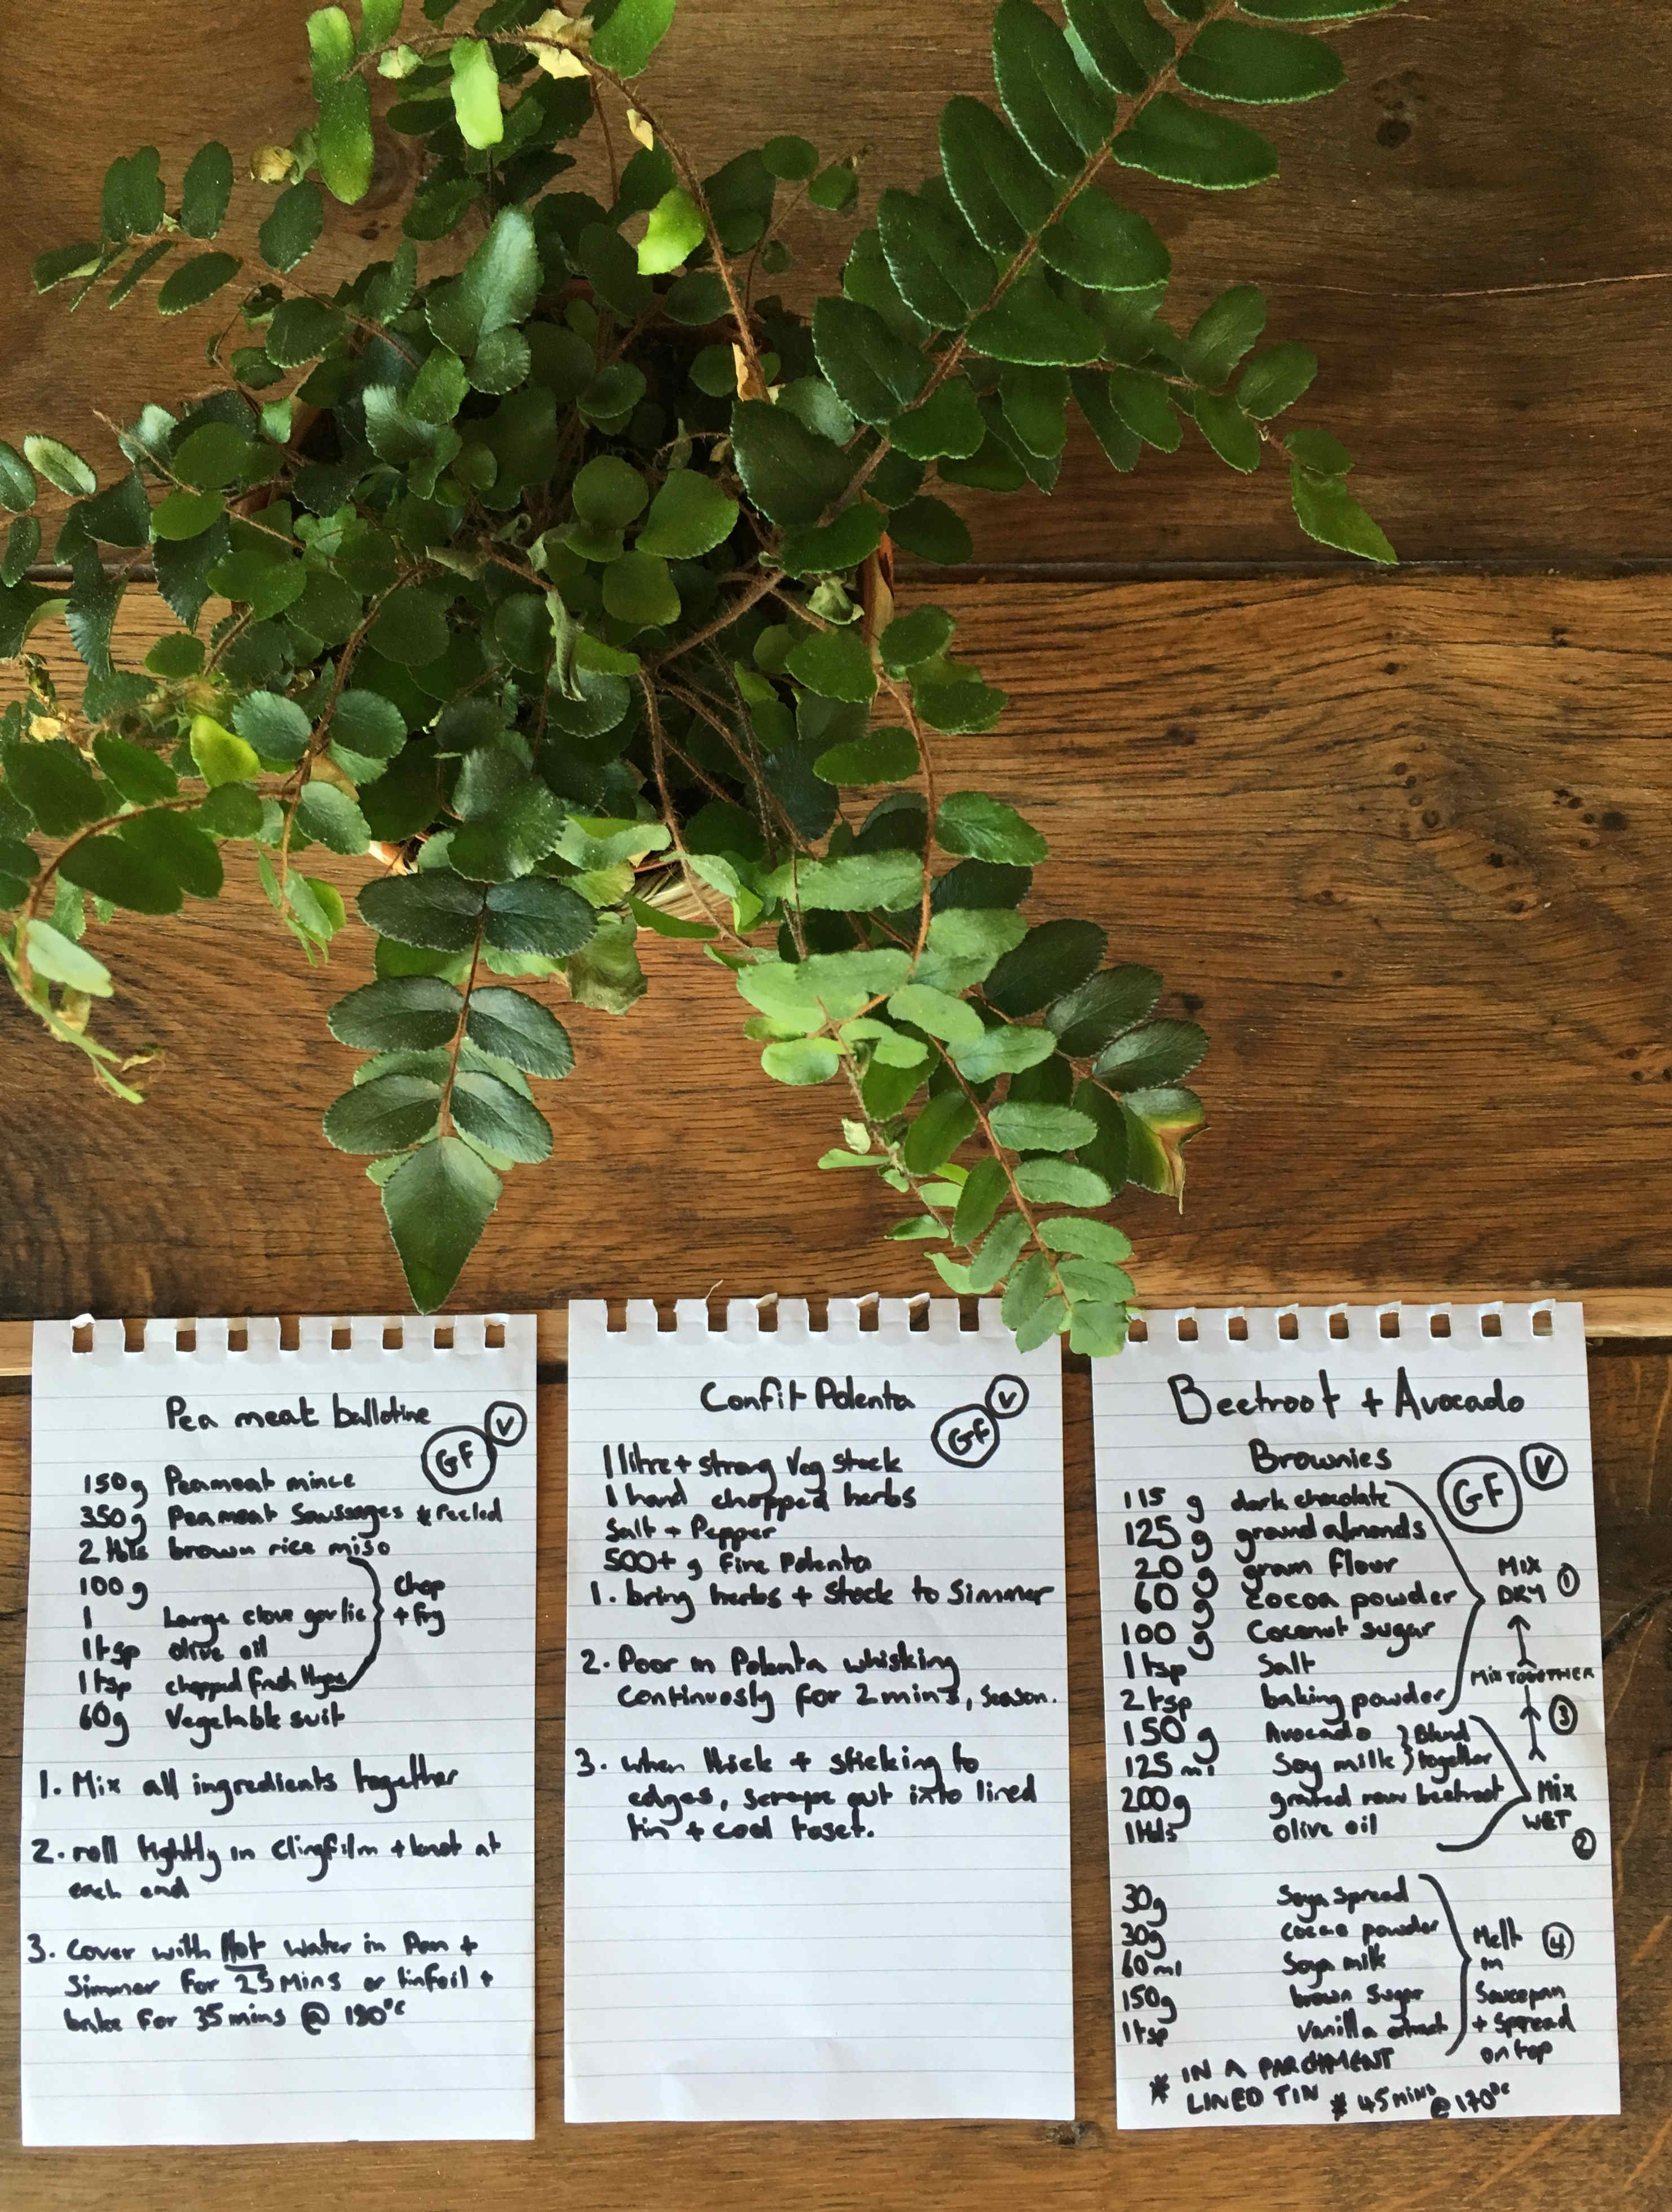 Pea meat ballotine
V
GF
150g Peameat mince
350g Peameat Saussages * Peeled
2 tbls brown rice miso
100g
1 Large clove garlic
1tsp olive oil
1tsp chopped fresh
Chop
+ fry
60g Vegetable suit
1. Mix all ingredients together
2. roll tightly in Clingfilm + knot at
each end
3. Cover with Hot water in Pan +
Simmer for 25 Mins or tinfoil +
bake for 35 mins @ 180°c
Confit Polenta
V
GF
1 litre + strong Veg stock
1 hand chopped herbs
Salt + Pepper
500+ g Fine Polenta
1. bring herbs + Stock to Simmer
2. Poor in Polenta whisking
continuosly for 2 mins, Season.
3. when thick + sticking to
edges, scrape out into lined
tin + cool toset.
Beetroot + Avocado
Brownies
V
GF
115 g dark chocolate
125 g ground almonds
20 g gram flour
60 g cocoa powder
100 g Coconut sugar
1 tsp Salt
2 tsp baking powder
MIX
DRY 1
MIX TOGETHER
3
150 g Avocado
125 ml Soy milk
Blend
together
200g grated raw beetroot
1tbls olive oil
Mix
WET
2
30g Soya Spread
30g cocao powder
60ml Soya milk
150g brown Sugar
1tsp Vanilla extract
Melt 4
in
Saucepan
+ Spread
on top
* IN A PARCHMENT
LINED TIN * 45 MINS @ 170°c